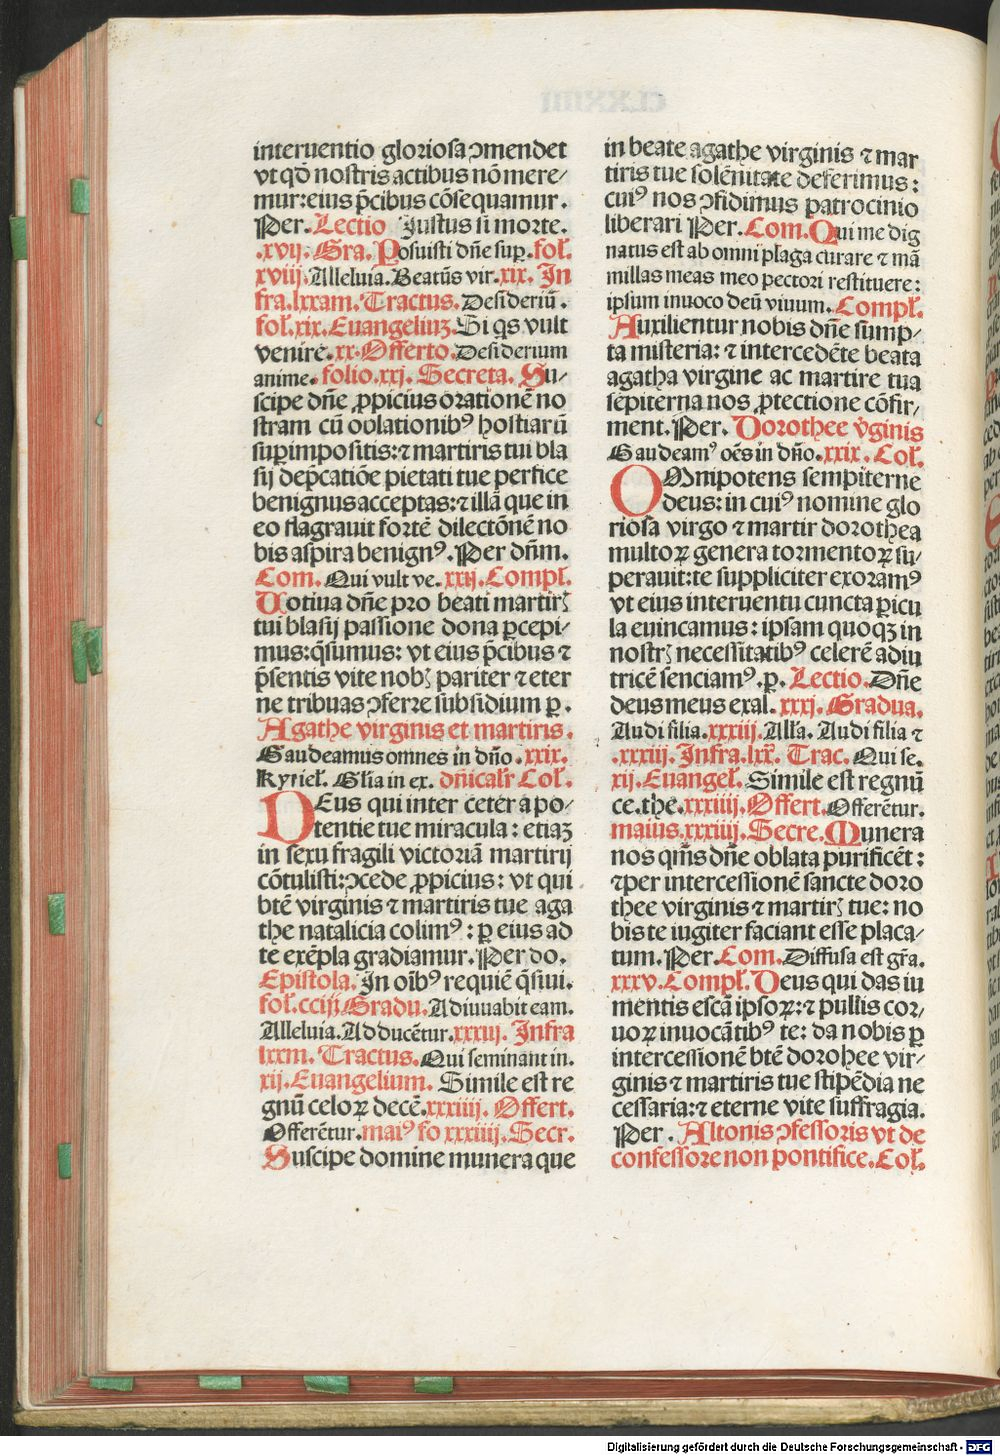 interuentio gloriosa ꝯmendet
vt qď nostris actibus nō mere⸗
mur: eius p̄cibus cōsequamur.
Per. Lectio Justus si morte.
.xvij. Gra. Posuisti dñe sup. fol̕.
xviij. Alleluia. Beatꝰ vir. xix. In
fra. lxxam. Tractus. Desideriū.
fol̕. xix. Euangeliuʒ. Si qs vult
venire. xx. Offerto. Desiderium
anime. folio. xxj. Secreta. Su⸗
scipe dñe ꝓpicius orationē no
stram cū oblationibꝰ hostiarū
suꝑimpositis: ⁊ martiris tui bla
sij dep̄catiōe pietati tue perfice
benignus acceptas: ⁊ illā que in
eo flagrauit fortē dilectōnē no
bis aspira benignꝰ. Per dñm.
Com. Qui vult ve. xxij. Compl̕.
Uotiua dñe pro beati martirꝭ
tui blasij passione dona ꝑcepi⸗
mus: q̄sumus: vt eius p̄cibus ⁊
p̄sentis vite nobꝭ pariter ⁊ eter
ne tribuas ꝯferre subsidium ꝑ.
Agathe virginis et martiris.
Gaudeamus omnes in dño. xxix.
Kyriel̕. Gl̄ia in ex. dñical̕r Col̕.
DEus qui inter cetera po⸗
tentie tue miracula: etiaʒ
in sexu fragili victoriā martirij
cōtulisti: ꝯcede ꝓpicius: vt qui
btē virginis ⁊ martiris tue aga
the natalicia colimꝰ: ꝑ eius ad
te exēpla gradiamur. Per do.
Epistola. In oībꝰ requiē q̄siui.
fol̕. ccij. Gradu. Adiuuabit eam.
Alleluia. Adducētur. xxxuj. Infra
lxxm. Tractus. Qui seminant in.
xij. Euangelium. Simile est re
gnū celoꝝ decē. xxxiiij. Offert.
Offerētur. maiꝰ fo xxxiiij. Secr.
Suscipe domine munera que
in beate agathe virginis ⁊ mar
tiris tue solēnitate deferimus:
cuiꝰ nos ꝯfidimus patrocinio
liberari Per. Com. Qui me dig
natus est ab omni plaga curare ⁊ mā
millas meas meo pectori restituere:
ipsum inuoco deū viuum. Compl̕.
Auxilientur nobis dñe sump⸗
ta misteria: ⁊ intercedēte beata
agatha virgine ac martire tua
sēpiterna nos ꝓtectione cōfir⸗
ment. Per. Dorothee v̕ginis
Gaudeamꝰ oēs in dño. xxix. Col̕.
OMnipotens sempiterne
deus: in cuiꝰ nomine glo
riosa virgo ⁊ martir dorothea
multoꝝ genera tormentoꝝ su⸗
perauit: te suppliciter exoramꝰ
vt eius interuentu cuncta ꝑicu
la euincamus: ipsam quoqʒ in
nostrꝭ necessitatibꝰ celerē adiu
tricē senciamꝰ. p. Lectio. Dñe
deus meus exal. xxxj. Gradua.
Audi filia. xxxiij. All̕a. Audi filia ⁊
.xxxiij. Infra. lxx̄. Trac. Qui se.
xij. Euangel̕. Simile est regnū
ce. the. xxxiiij. Offert. Offerētur.
maius. xxxiiij. Secre. Munera
nos qm̄s dñe oblata purificēt:
⁊ per intercessionē sancte doro
thee virginis ⁊ martirꝭ tue: no
bis te iugiter faciant esse placa⸗
tum. Per. Com. Diffusa est gr̄a.
xxxv. Compl̕. Deus qui das iu
mentis escā ipsoꝝ: ⁊ pullis cor⸗
uoꝝ inuocātibꝰ te: da nobis ꝑ
intercessionē btē dorohee vir⸗
ginis ⁊ martiris tue stipēdia ne
cessaria: ⁊ eterne vite suffragia.
Per. Altonis ꝯfessoris vt de
confessore non pontifice. Col̕.
Digitalisierung gefördert durch die Deutsche Forschungsgemeinschaft - DFG